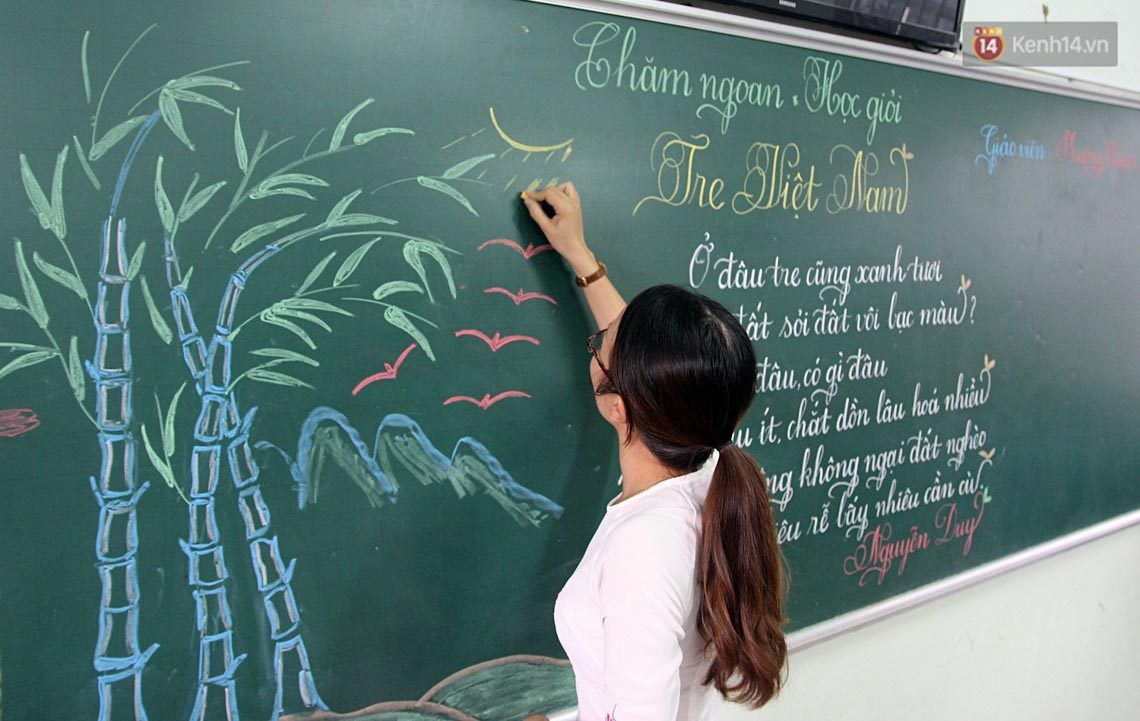 KENH 14 Kenh14.vn
Chăm ngoan * Học giỏi
Giáo viên: Phương
Tre Việt Nam
Ở đâu tre cũng xanh tươi
đất sỏi đất vôi bạc màu?
đâu, có gì đâu
ít, chắt dồn lâu hoá nhiều
không ngại đất nghèo
rễ bấy nhiêu cần cù.
Nguyễn Duy